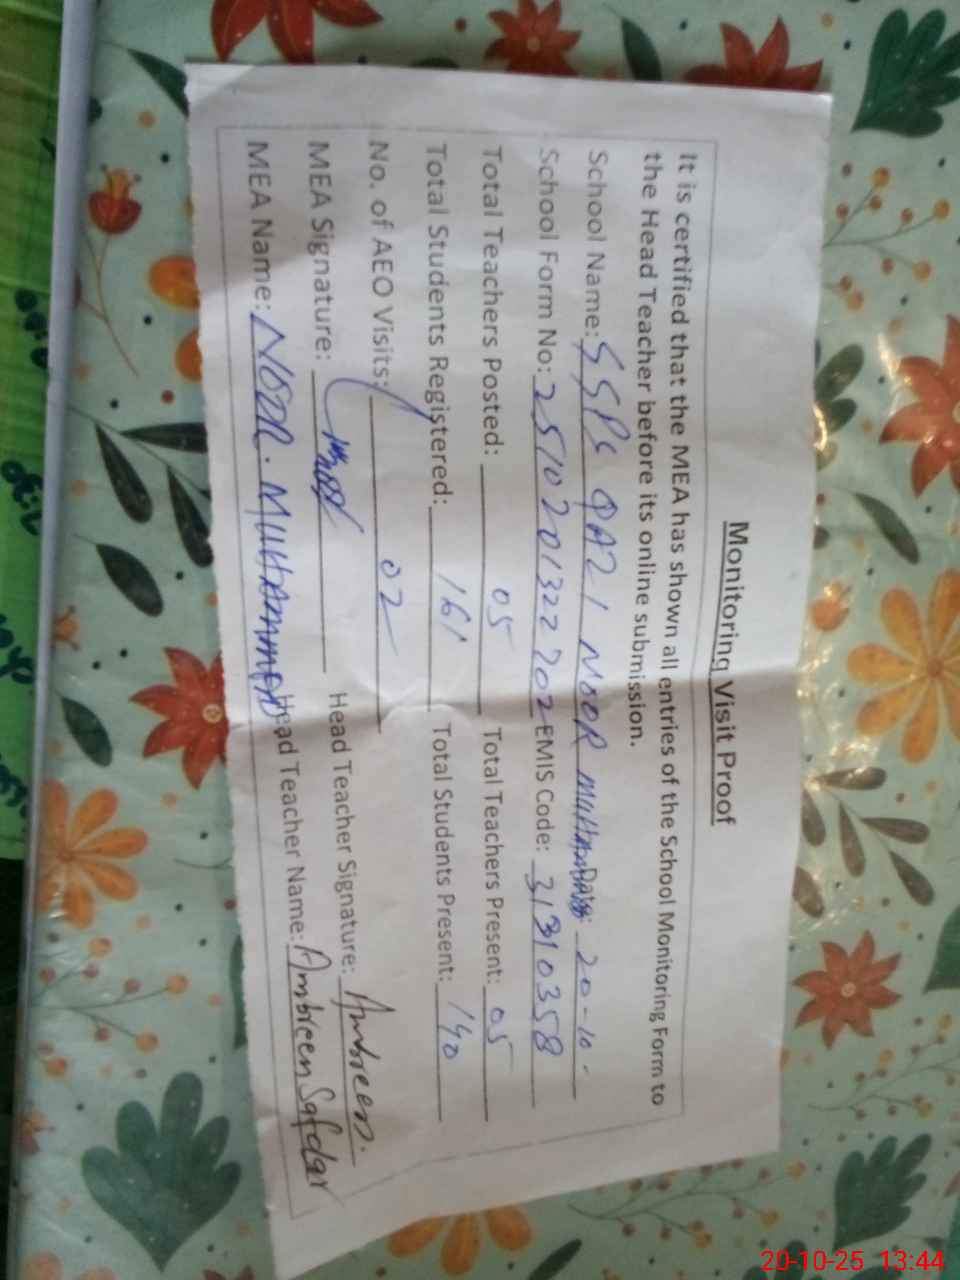 Monitoring Visit Proof
It is certified that the MEA has shown all entries of the School Monitoring Form to
the Head Teacher before its online submission.
School Name: QAZI NOOR MUHAMMAD Date: 20-10-
School Form No: 2510201322702 EMIS Code: 31310358
Total Teachers Posted: 05 Total Teachers Present: 05
Total Students Registered: 161 Total Students Present: 140
No. of AEO Visits: 02
MEA Signature: Head Teacher Signature: Ambreen.
MEA Name: NOOR. MUHAMMAD Head Teacher Name: Ambreen Safdar
20-10-25 13:44